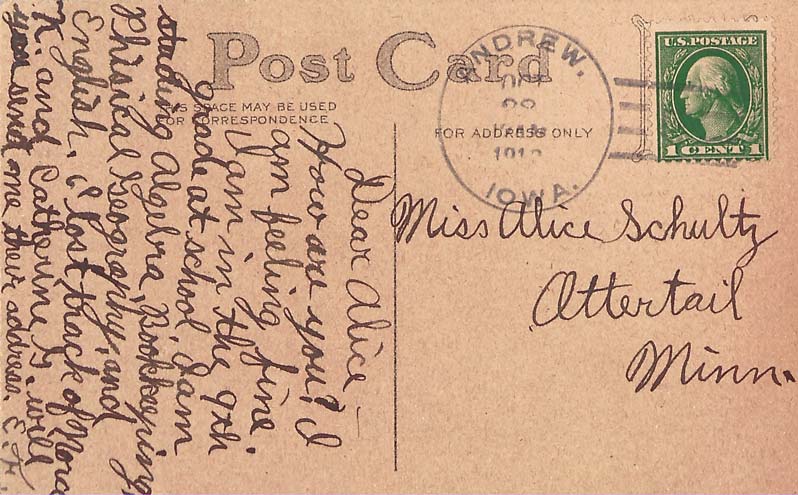 Post Card
THIS SPACE MAY BE USED
FOR CORRESPONDENCE
FOR ADDRESS ONLY
ANDREW.
IOWA.
U.S. POSTAGE
1 CENT 1
Miss Alice Schultz
Ottertail
Minn.
Dear Alice—
How are you? I
am feeling fine.
I am in the 9th
grade at school I am
studing Algebra, Bookkeeping,
Phisical Geography, and
English. I lost track of Nora
K. and Catherine G. will
you send me their address. E.H.